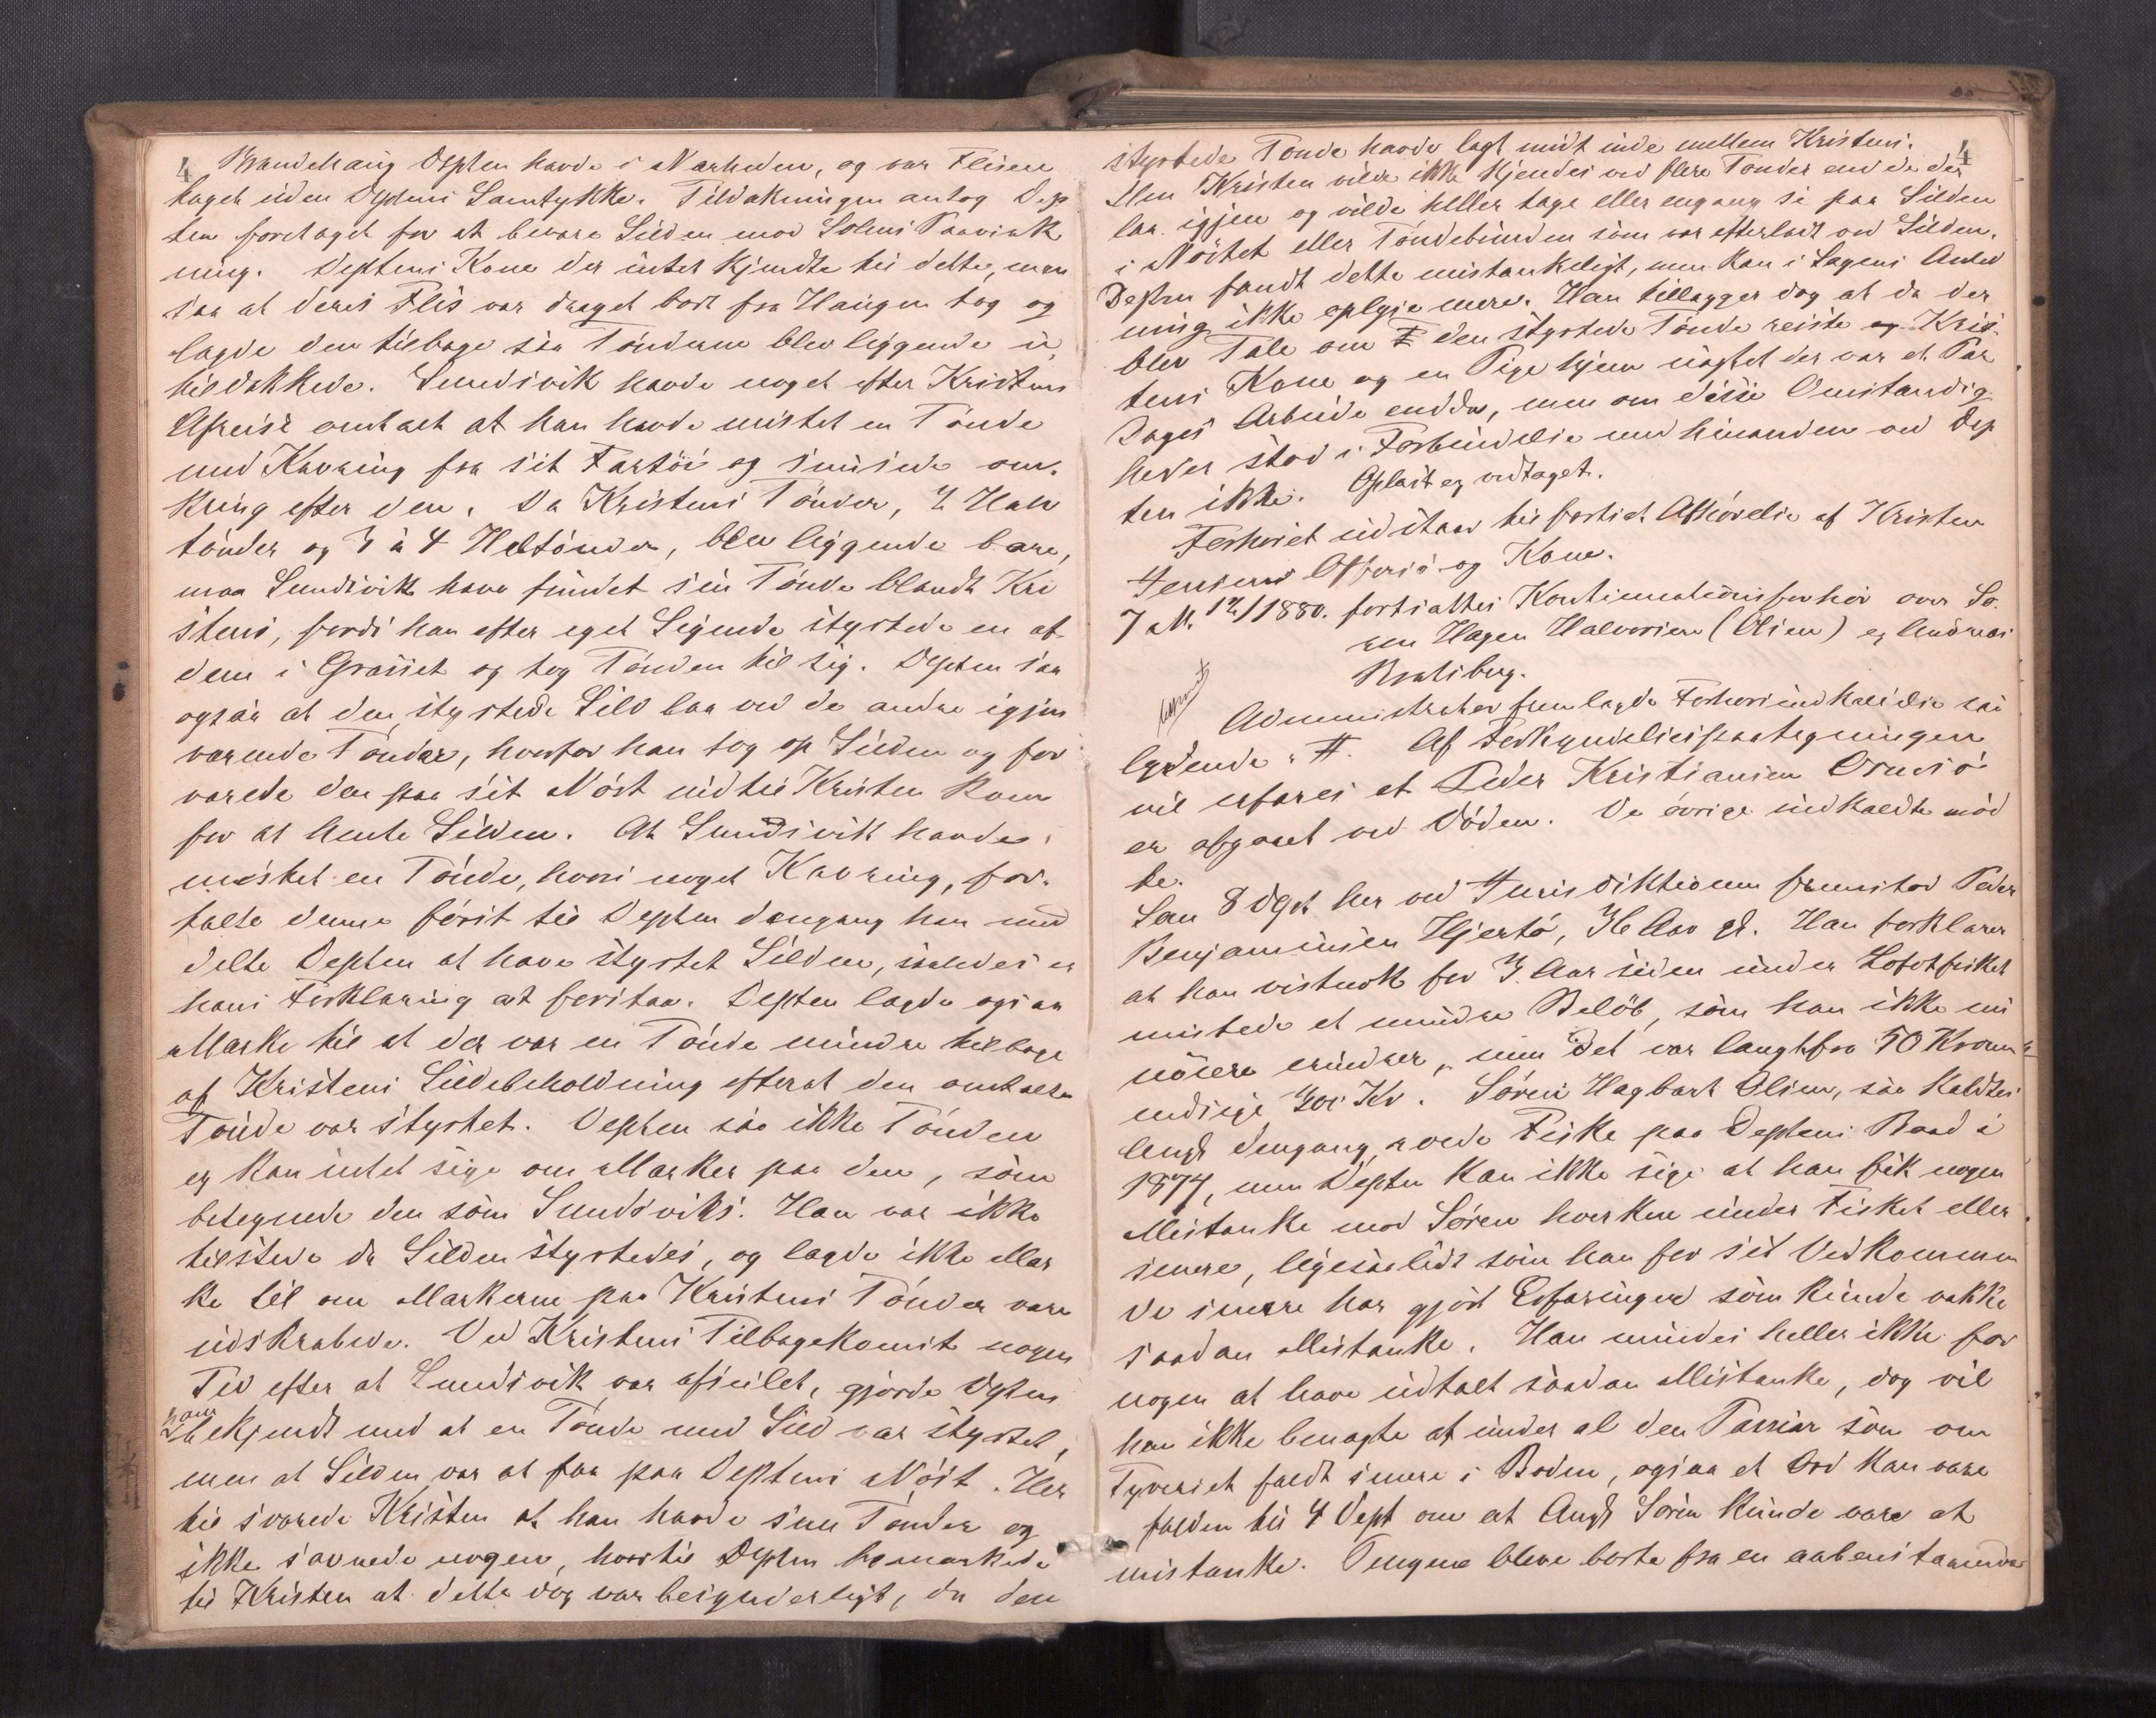 4
Brandehaug Depten havde i Nærheden, og var Flisen
taget uden Deptens Samtykke. Tildækningen antog Dep
ten foretaget for at bevare Silden mod Solens Paavirk
ning. Deptens Kone der intet kjendte til dette, men
saa at deres Flis var draget bort fra Haugen tog og
lagde den tilbage saa Tønderne blev liggende u
tildækkede. Sundsvik havde noget efter Kristens
Afreise omtalt at han havde mistet en Tønde
med Kavring fra sit Fartøi og snusede om-
kring efter den. Da Kristens Tønder, 2 Halv
tønder og 3 à 4 Heltønder, blev liggende bare,
maa Sundsvik have fundet sin Tønde blandt Kri
stens, fordi han efter eget Sigende styrtede en af
dem i Græsset og tog Tønden til sig. Depten saa
ogsaa at den styrtede Sild laa ved de andre igjen
værende Tønder, hvorfor han tog op Silden og for
varede den paa sit Nøst indtil Kristen kom
for at hente Silden. At Sundsvik havde
mistet en Tønde, hvori noget Kavring, for-
talte denne først til Depten dengang han med
delte Depten at have styrtet Silden, saaledes er
hans Forklaring at forstaa. Depten lagde ogsaa
Mærke til at der var en Tønde mindre tilbage
af Kristens Sildebeholdning efterat den omtalte
Tønde var styrtet. Depten saa ikke Tønden
og kan intet sige om Mærker paa den, som
betegnede den som Sundsviks. Han var ikke
tilstede da Silden styrtedes, og lagde ikke Mær
ke til om Mærkerne paa Kristens Tønder vare
udskrabede. Ved Kristens Tilbagekomst nogen
Tid efter at Sundsvik var afseilet, gjorde Depten
ham
bekjendt med at en Tønde med Sild var styrtet,
men at Silden var at faa paa Deptens Nøst. Her
til svarede Kristen at han havde sine Tønder og
ikke savnede nogen, hvortil Depten bemærkede
til Kristen at dette dog var besynderligt, da den
4
styrtede Tønde havde lagt midt inde mellem Kristens.
Men Kristen vilde ikke kjendes ved flere Tønder end de der
laa igjen og vilde heller tage eller engang se paa Silden
i Nøstet eller Tøndebunden som var efterladt ved Silden.
Depten fandt dette mistænkeligt, men kan i Sagens Anled
ning ikke oplyse mere. Han tillægger dog at da der
blev Tale om den styrtede Tønde reiste Kris-
tens Kone og en Pige hjem uagtet der var et Par
Dages Arbeide endda, men om disse Omstændig
heder stod i Forbindelse med hinanden ved Dep
ten ikke. Oplæst og vedtaget.
Forhøret udstaar til fortsat Afhørelse af Kristen
Jensen Offersø og Kone.
7 M. 12/1880. fortsattes Kontinuationsforhør over Sø-
ren Hagen Halvorsen (Olsen) og Andreas
Bratsberg.
Administrator fremlagde Forhørsindkaldelse saa
lydende: #. Af Forkyndelsespaategningen
vil erfares at Peder Kristiansen Ornesø
er afgaaet ved Døden. De øvrige indkaldte mød
te.
Som 8 Dept her ved Jurisdiktionen fremstod Peder
Benjaminsen Hjertø, 36 Aar gl. Han forklarer
at han vistnok for 3 Aar siden under Lofotfisket
mistede et mindre Beløb, som han ikke nu
nøiere erindrer, men det var langtfra 50 Kroner
endsige 200 Kr. Søren Hagbart Olsen, saa kaldtes
Angt dengang, roede Fiske paa Deptens Baad i
1874, men Depten kan ikke sige at han fik nogen
Mistanke mod Søren hverken under Fisket eller
senere, ligesaalidt som han for sit Vedkommen
de senere har gjort Erfaringer som kunde vække
saadan Mistanke. Han mindes heller ikke for
nogen at have udtalt saadan Mistanke, dog vil
han ikke benægte at under al den Passiar som om
Tyveriet faldt senere i Boden, ogsaa et Ord kan være
falden til 4 Dept om at Angt Søren kunde være at
mistænke. Pengene bleve borte fra en aabenstaaende